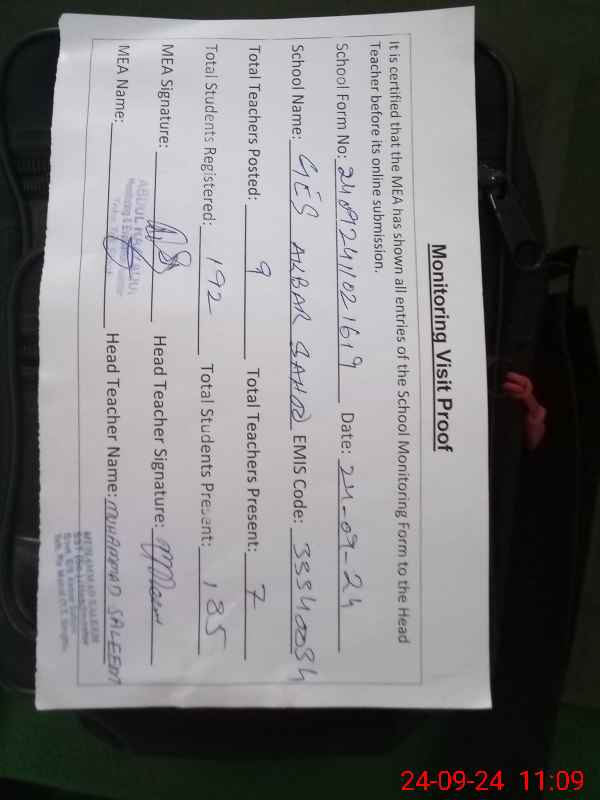 Monitoring Visit Proof
It is certified that the MEA has shown all entries of the School Monitoring Form to the Head
Teacher before its online submission.
School Form No: Date: 24-09-24
School Name: GES AKBAR EMIS Code: 33340034
Total Teachers Posted: 9 Total Teachers Present: 7
Total Students Registered: 192 Total Students Present: 185
MEA Signature: Head Teacher Signature:
MEA Name: Head Teacher Name: MUHAMMAD SALEEM
ABDUL
Monitoring &
MUHAMMAD SALEEM
24-09-24 11:09